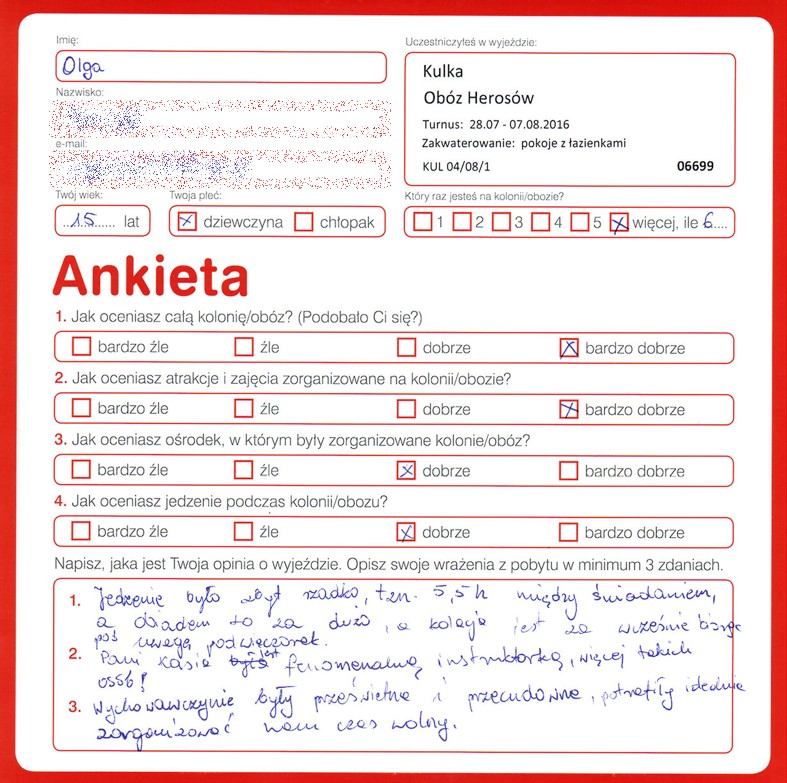 Imię:
Olga
Nazwisko:
e-mail:
Twój wiek:
15 lat
Twoja płeć:
dziewczyna chłopak
Uczestniczyłeś w wyjeździe:
Kulka
Obóz Herosów
Turnus: 28.07 - 07.08.2016
Zakwaterowanie: pokoje z łazienkami
KUL 04/08/1 06699
Który raz jesteś na kolonii/obozie?
1 2 3 4 5 więcej, ile 6
Ankieta
1. Jak oceniasz całą kolonię/obóz? (Podobało Ci się?)
bardzo źle źle dobrze bardzo dobrze
2. Jak oceniasz atrakcje i zajęcia zorganizowane na kolonii/obozie?
bardzo źle źle dobrze bardzo dobrze
3. Jak oceniasz ośrodek, w którym były zorganizowane kolonie/obóz?
bardzo źle źle dobrze bardzo dobrze
4. Jak oceniasz jedzenie podczas kolonii/obozu?
bardzo źle źle dobrze bardzo dobrze
Napisz, jaka jest Twoja opinia o wyjeździe. Opisz swoje wrażenia z pobytu w minimum 3 zdaniach.
1. Jedzenie było zbyt rzadko, tzn. 5,5h między śniadaniem,
a obiadem to za dużo, a kolacja jest za wcześnie biorąc
pod uwagę podwieczorek.
2. Pani Kasia była jest fenomenalną instruktorką, więcej takich
osób!
3. Wychowawczynie były prześwietne i przecudowne, potrafiły idealnie
zorganizować nam czas wolny.